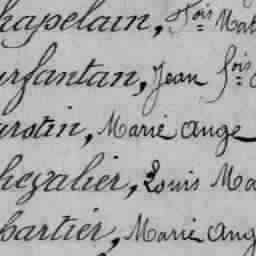 hapelain, Fois Mat
rfantan, Jean fois
rotin, Marie Ange
hevalier, Louis Ma
bartier, Marie Ang